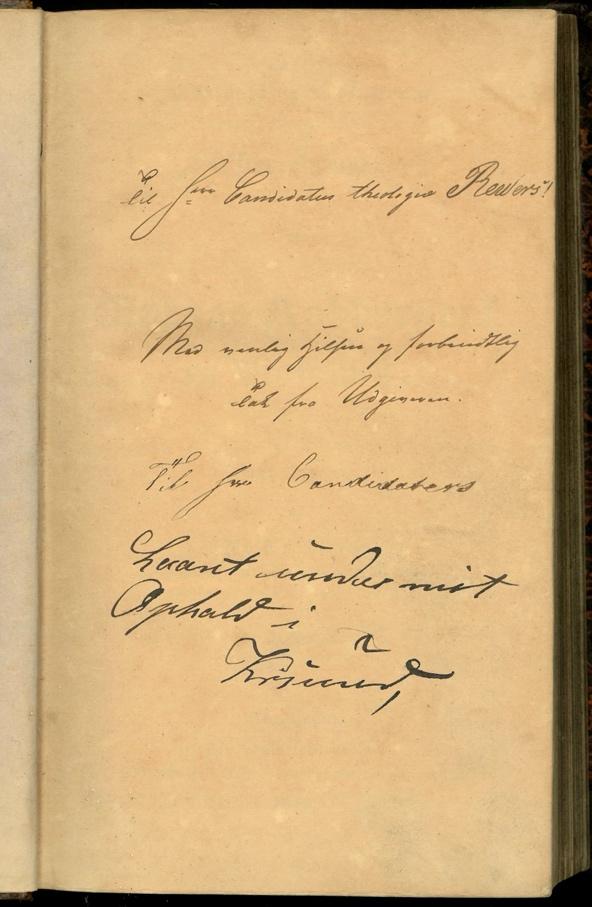 Til Herr Candidatus theologiæ Revers!
Med venlig Hilsen og forbindtlig
Tak fra Udgiveren.
Til Herr Candidaters
Laant under mit
Ophald i